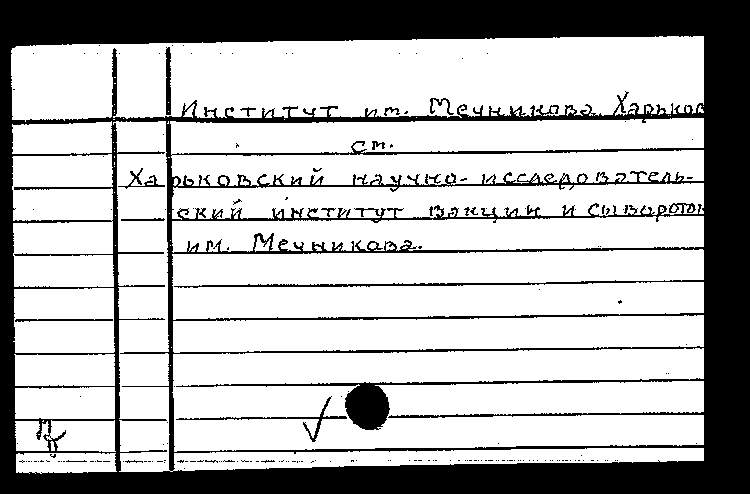 Институт им. Мечникова Харьков
см.
Харьковский научно-исследователь-
ский институт вакцин и сывороток
им. Мечникова.